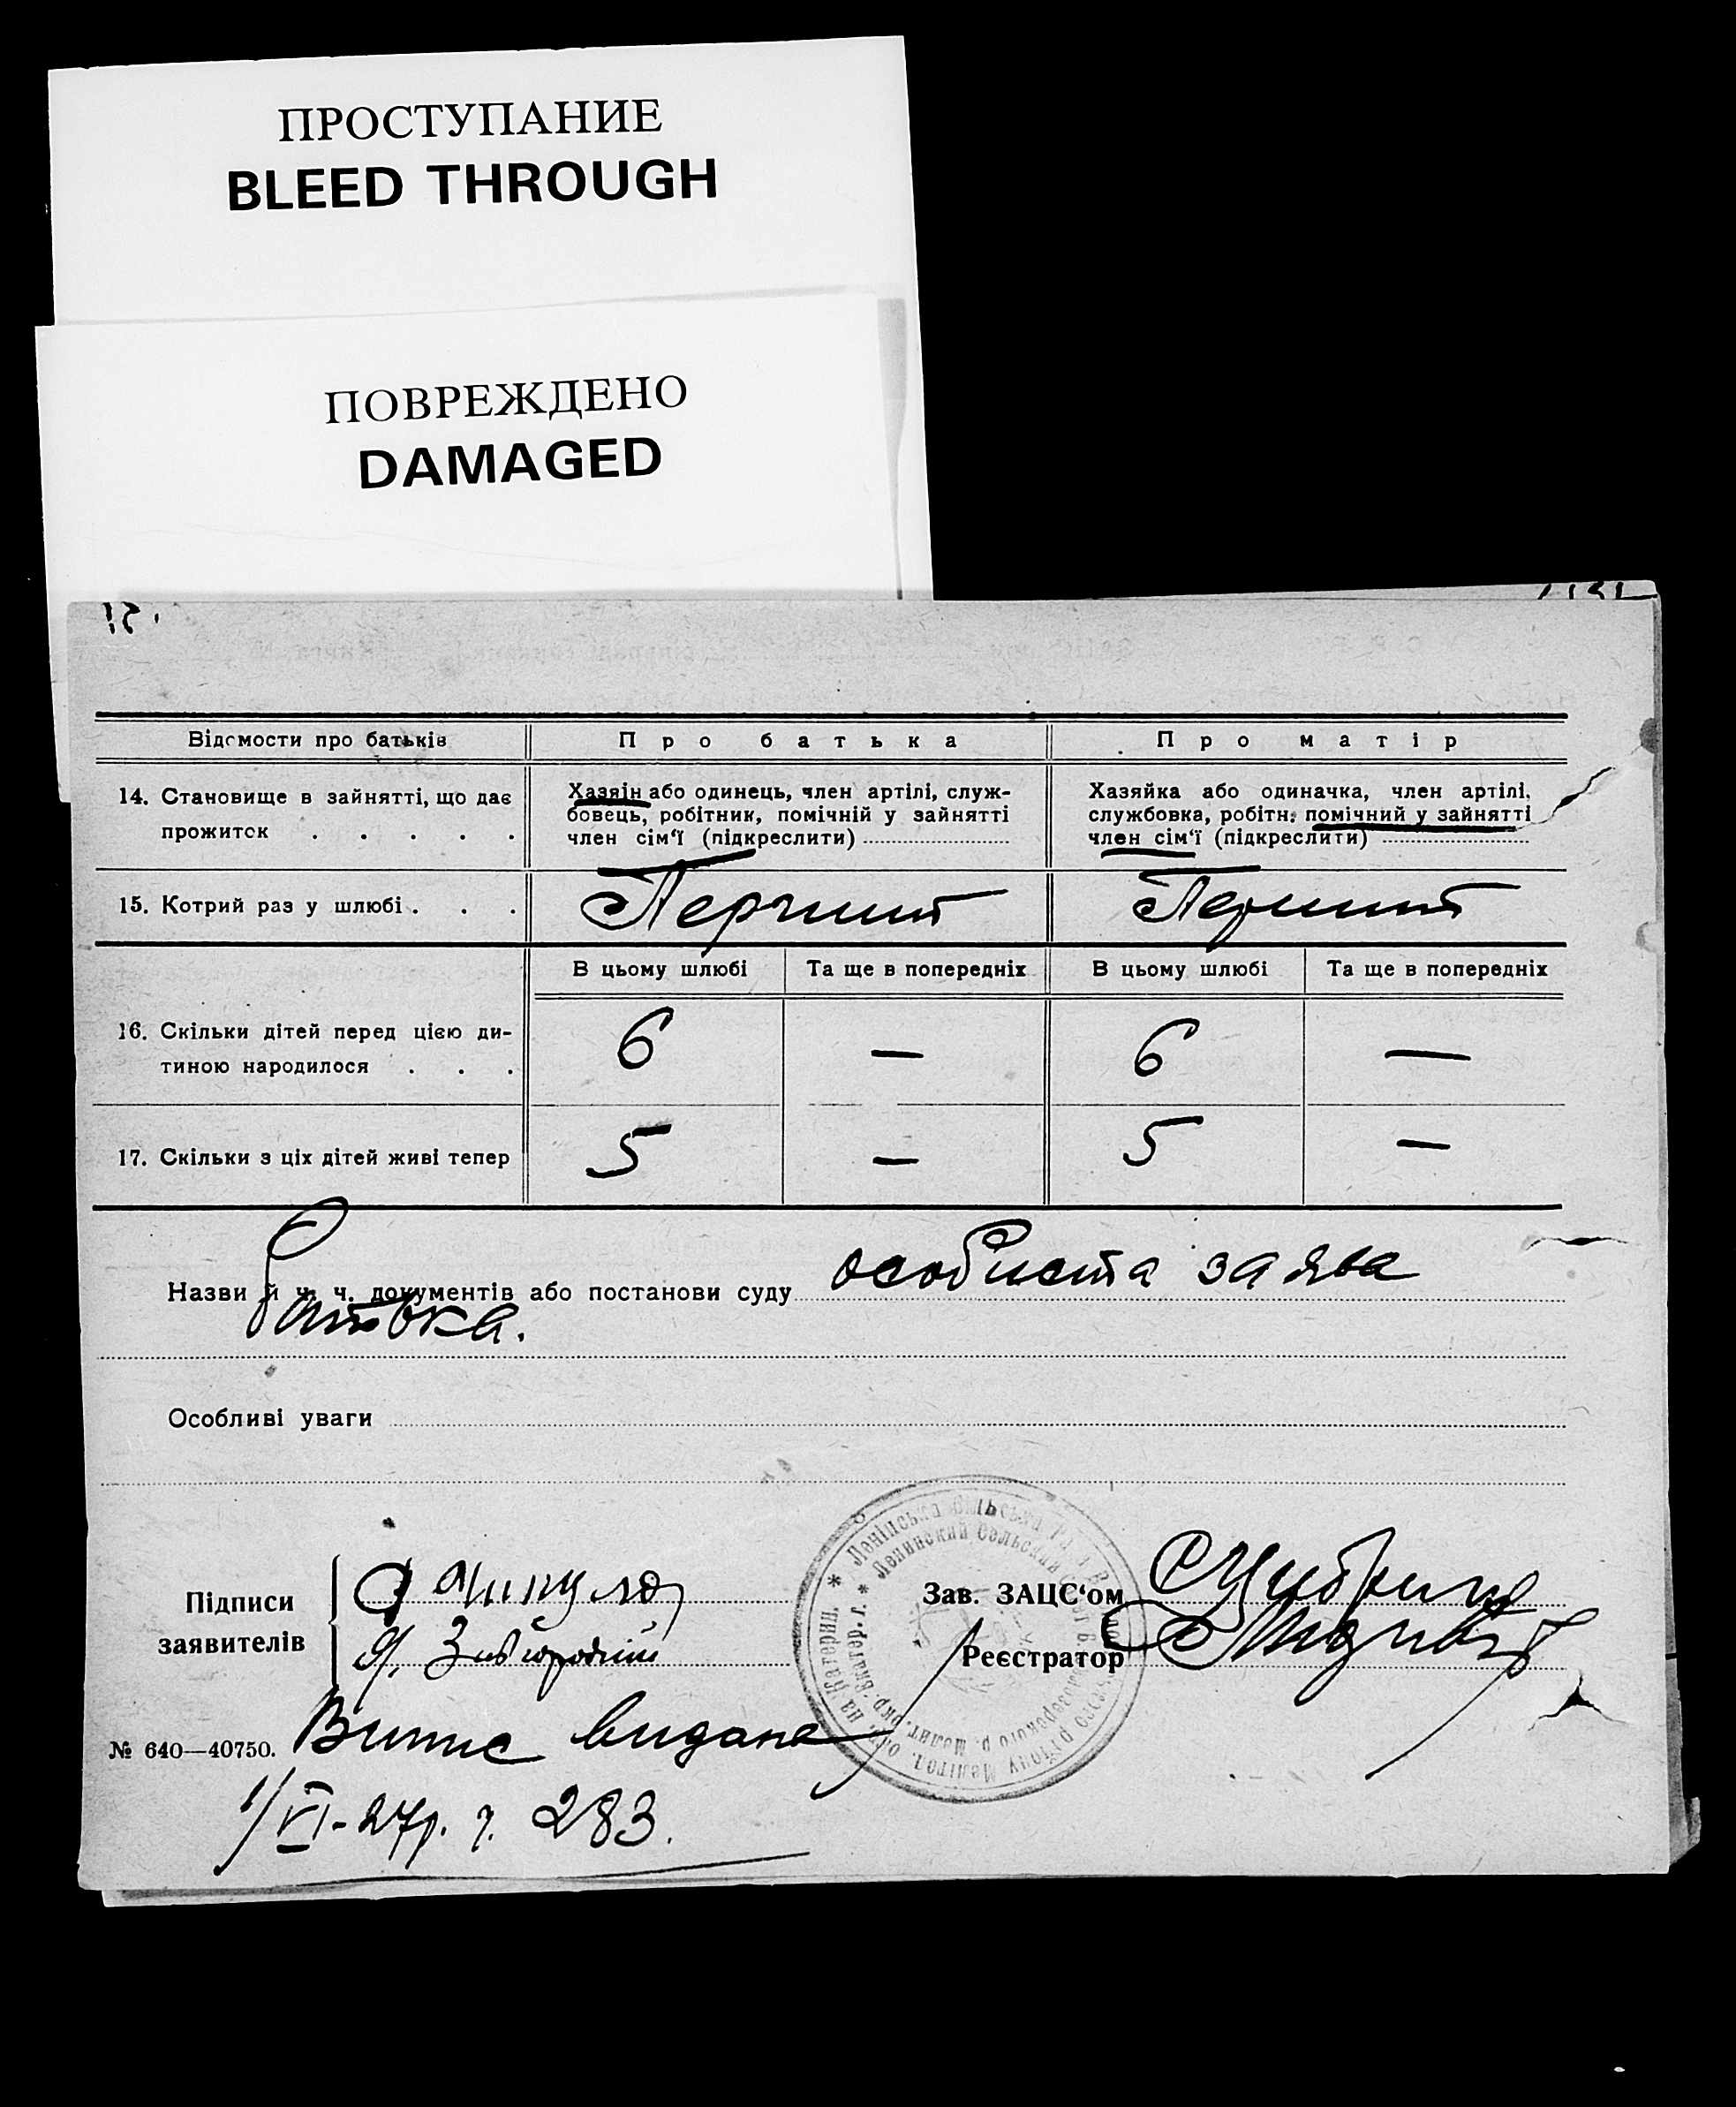 ПРОСТУПАНИЕ
BLEED THROUGH
ПОВРЕЖДЕНО
DAMAGED
Відомости про батьків
Про батька
Про матір
14. Становище в зайнятті, що дає
прожиток . . . . .
Хазяін або одинець, член артілі, служ-
бовець, робітник, помічній у зайнятті
член сім‘ї (підкреслити)
Хазяйка або одиначка, член артілі,
службовка, робітн. помічний у зайнятті
член сім‘ї (підкреслити)
15. Котрий раз у шлюбі . . .
Перший
Перший
В цьому шлюбі
Та ще в попередніх
В цьому шлюбі
Та ще в попередніх
16. Скільки дітей перед цією ди-
тиною народилося . . .
6
—
6
—
17. Скільки з ціх дітей живі тепер
5
—
5
—
Назви й ч. ч. документів або постанови суду особиста заява
батька.
Особливі уваги
Підписи
заявителів
Зав. ЗАЦС‘ом
Реєстратор
№ 640—40750.
Випис видано
1/VI-27р. ч. 283.